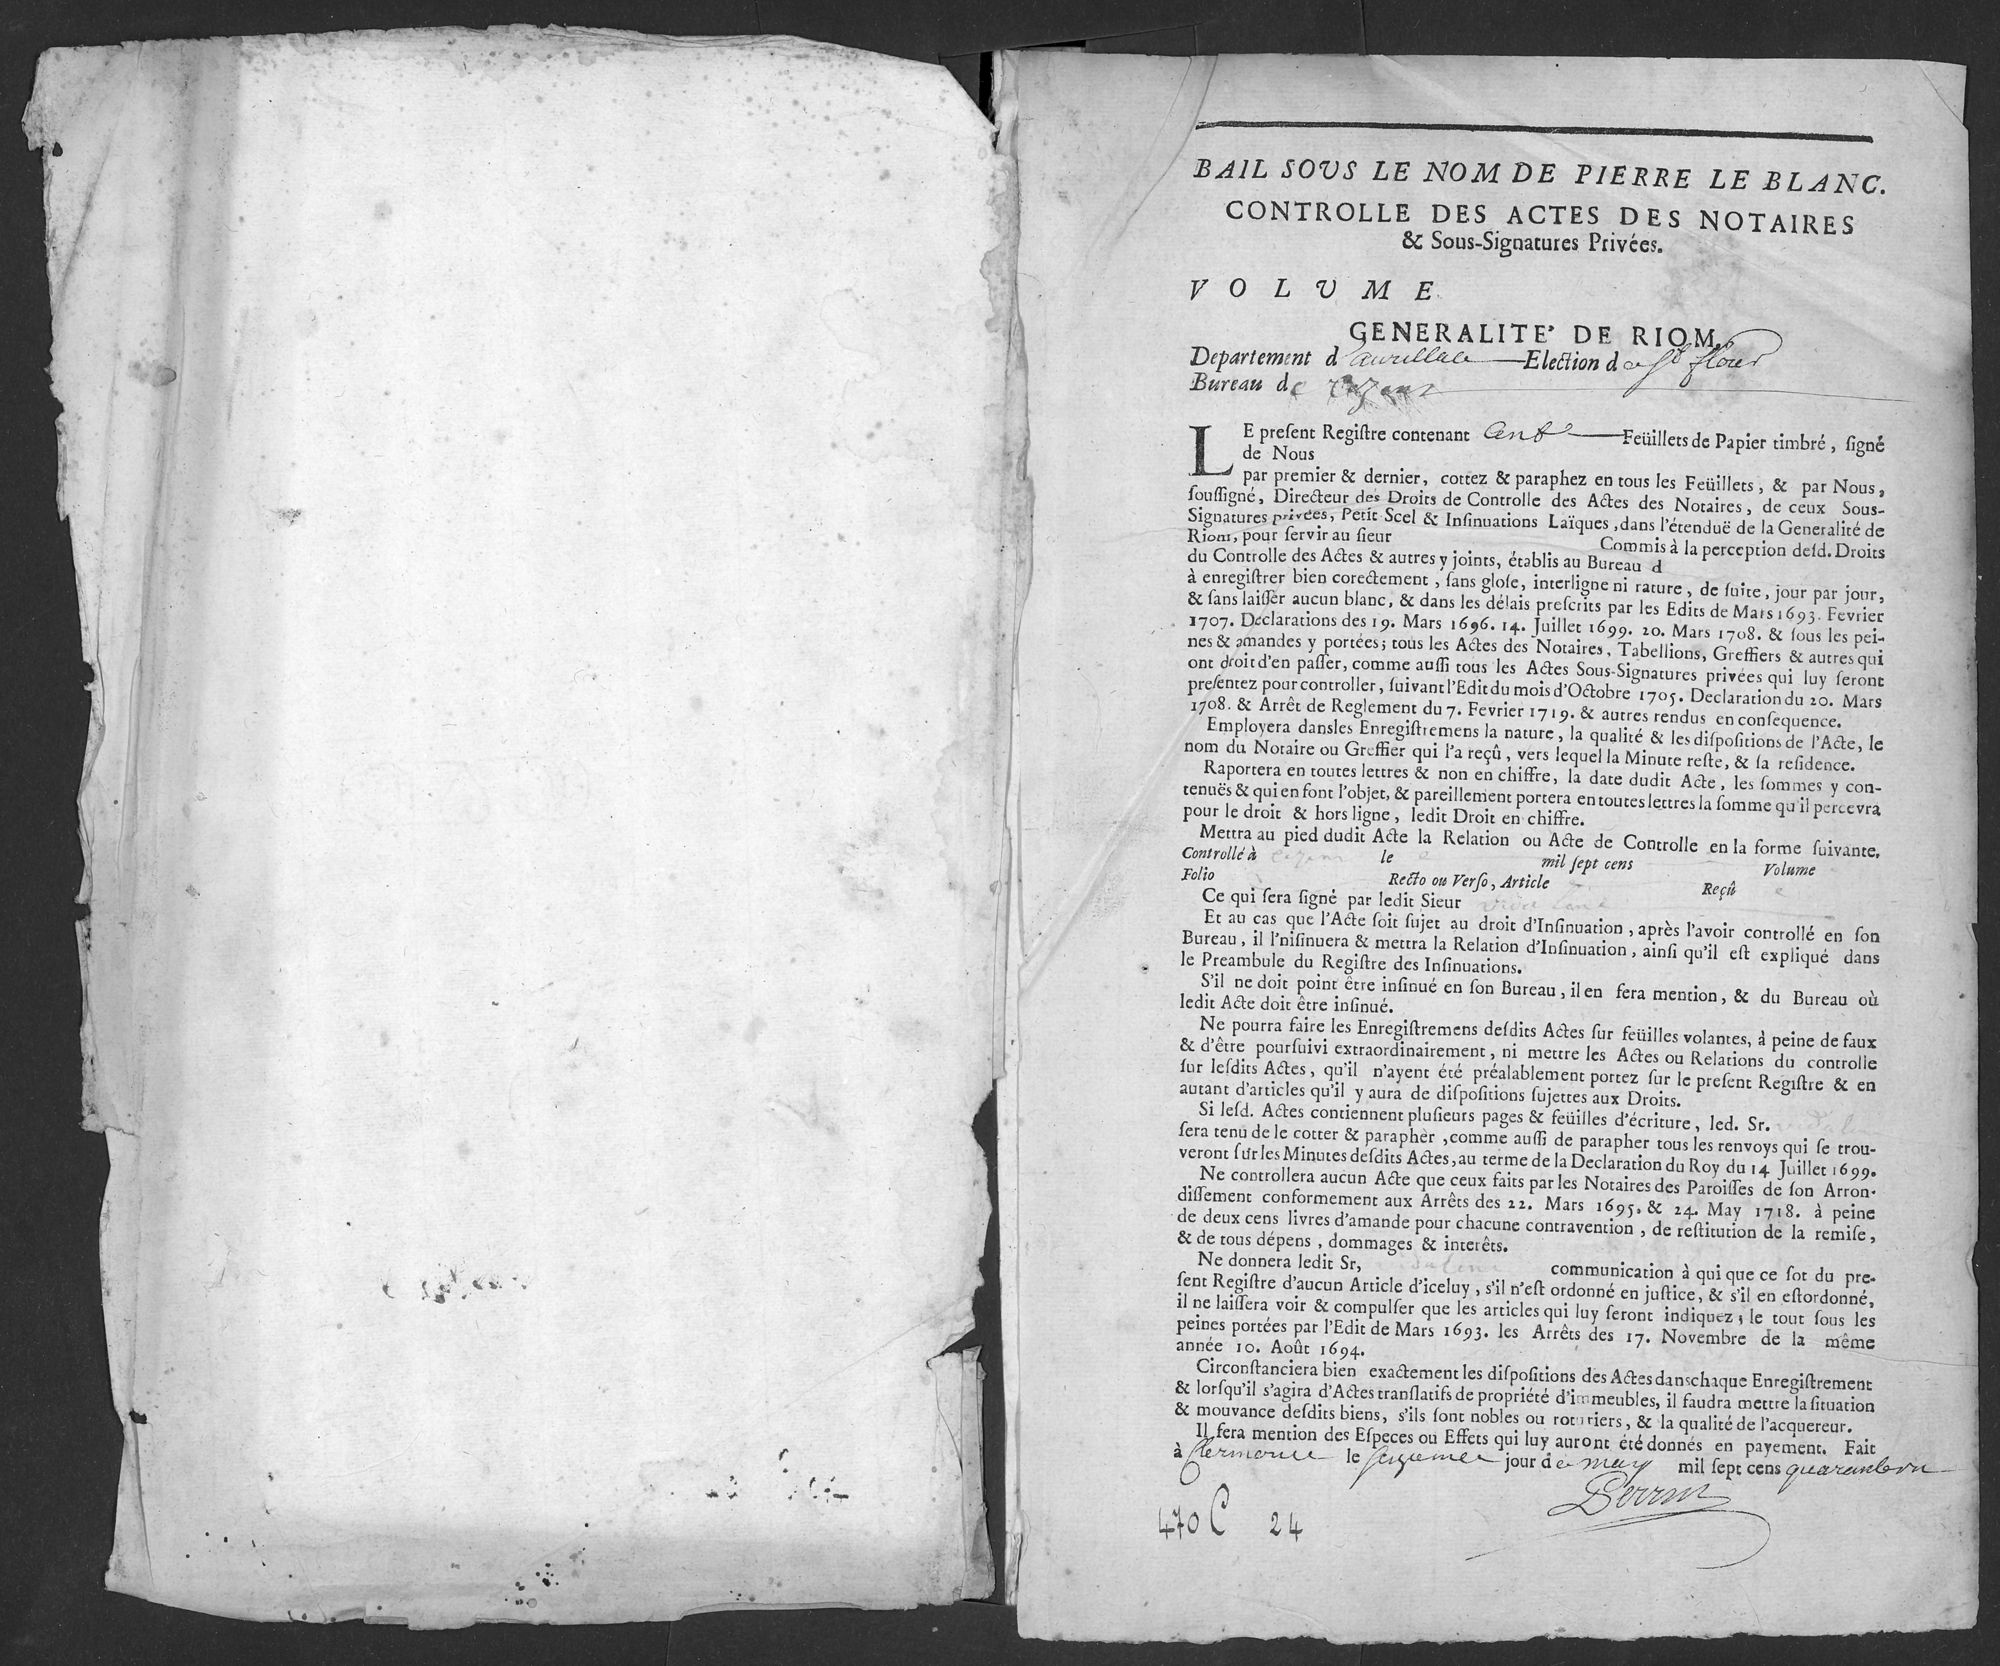 BAIL SOUS LE NOM DE PIERRE LE BLANC.
CONTROLLE DES ACTES DES NOTAIRES
& Sous-Signatures Privées.
VOLUME
GENERALITE' DE RIOM.
Departement d'aurillac Election de St flour
Bureau de Cezens
LE preſent Regiſtre contenant Cent Feüillets de Papier timbré, ſigné
de Nous
par premier & dernier, cottez & paraphez en tous les Feüillets, & par Nous,
ſouſſigné, Directeur des Droits de Controlle des Actes des Notaires, de ceux Sous-
Signatures privées, Petit Scel & Inſinuations Laïques, dans l'étenduë de la Generalité de
Riom, pour ſervir au ſieur Commis à la perception deſd. Droits
du Controlle des Actes & autres y joints, établis au Bureau d
à enregiſtrer bien corectement, ſans gloſe, interligne ni rature, de ſuite, jour par jour,
& ſans laiſſer aucun blanc, & dans les délais preſcrits par les Edits de Mars 1693. Fevrier
1707. Déclarations des 19. Mars 1696. 14. Juillet 1699. 20. Mars 1708. & ſous les pei-
nes & amandes y portées; tous les Actes des Notaires, Tabellions, Greffiers & autres qui
ont droit d'en paſſer, comme auſſi tous les Actes Sous-Signatures privées qui luy ſeront
preſentez pour controller, ſuivant l'Edit du mois d'Octobre 1705. Declaration du 20. Mars
1708. & Arrêt de Reglement du 7. Fevrier 1719. & autres rendus en conſequence.
Employera dans les Enregiſtremens la nature, la qualité & les diſpoſitions de l'Acte, le
nom du Notaire ou Greffier qui l'a reçû, vers lequel la Minute reſte, & ſa reſidence.
Raportera en toutes lettres & non en chiffre, la date dudit Acte, les ſommes y con-
tenuës & qui en font l'objet, & pareillement portera en toutes lettres la ſomme qu'il percevra
pour le droit & hors ligne, ledit Droit en chiffre.
Mettra au pied dudit Acte la Relation ou Acte de Controlle en la forme ſuivante.
Controllé à Cezens le mil ſept cens Volume
Folio Recto ou Verſo, Article Reçû
Ce qui ſera ſigné par ledit Sieur
Et au cas que l'Acte ſoit ſujet au droit d'Inſinuation, après l'avoir controllé en ſon
Bureau, il l'niſinuera & mettra la Relation d'Inſinuation, ainſi qu'il eſt expliqué dans
le Preambule du Regiſtre des Inſinuations.
S'il ne doit point être inſinué en ſon Bureau, il en fera mention, & du Bureau où
ledit Acte doit être inſinué.
Ne pourra faire les Enregiſtremens deſdits Actes ſur feüilles volantes, à peine de faux
& d'être pourſuivi extraordinairement, ni mettre les Actes ou Relations du controlle
ſur leſdits Actes, qu'il n'ayent été préalablement portez ſur le preſent Regiſtre & en
autant d'articles qu'il y aura de diſpoſitions ſujettes aux Droits.
Si leſd. Actes contiennent pluſieurs pages & feüilles d'écriture, led. Sr.
ſera tenu de le cotter & parapher, comme auſſi de parapher tous les renvoys qui ſe trou-
veront ſur les Minutes deſdits Actes, au terme de la Declaration du Roy du 14 Juillet 1699.
Ne controllera aucun Acte que ceux faits par les Notaires des Paroiſſes de ſon Arron-
diſſement conformement aux Arrêts des 22. Mars 1695. & 24. May 1718. à peine
de deux cens livres d'amande pour chacune contravention, de reſtitution de la remiſe,
& de tous dépens, dommages & interêts.
Ne donnera ledit Sr, communication à qui que ce ſot du pre-
ſent Regiſtre d'aucun Article d'iceluy, s'il n'eſt ordonné en juſtice, & s'il en eſtordonné,
il ne laiſſera voir & compulſer que les articles qui luy ſeront indiquez, le tout ſous les
peines portées par l'Edit de Mars 1693. les Arrêts des 17. Novembre de la même
année 10. Août 1694.
Circonſtanciera bien exactement les diſpoſitions des Actes danschaque Enregiſtrement
& lorſqu'il s'agira d'Actes tranſlatifs de propriété d'immeubles, il faudra mettre la ſituation
& mouvance deſdits biens, s'ils ſont nobles ou roturiers, & la qualité de l'acquereur.
Il fera mention des Eſpeces ou Effets qui luy auront été donnés en payement. Fait
à Clermont le ſeizieme jour de may mil ſept cens quarante un
Perrin
470 C 24